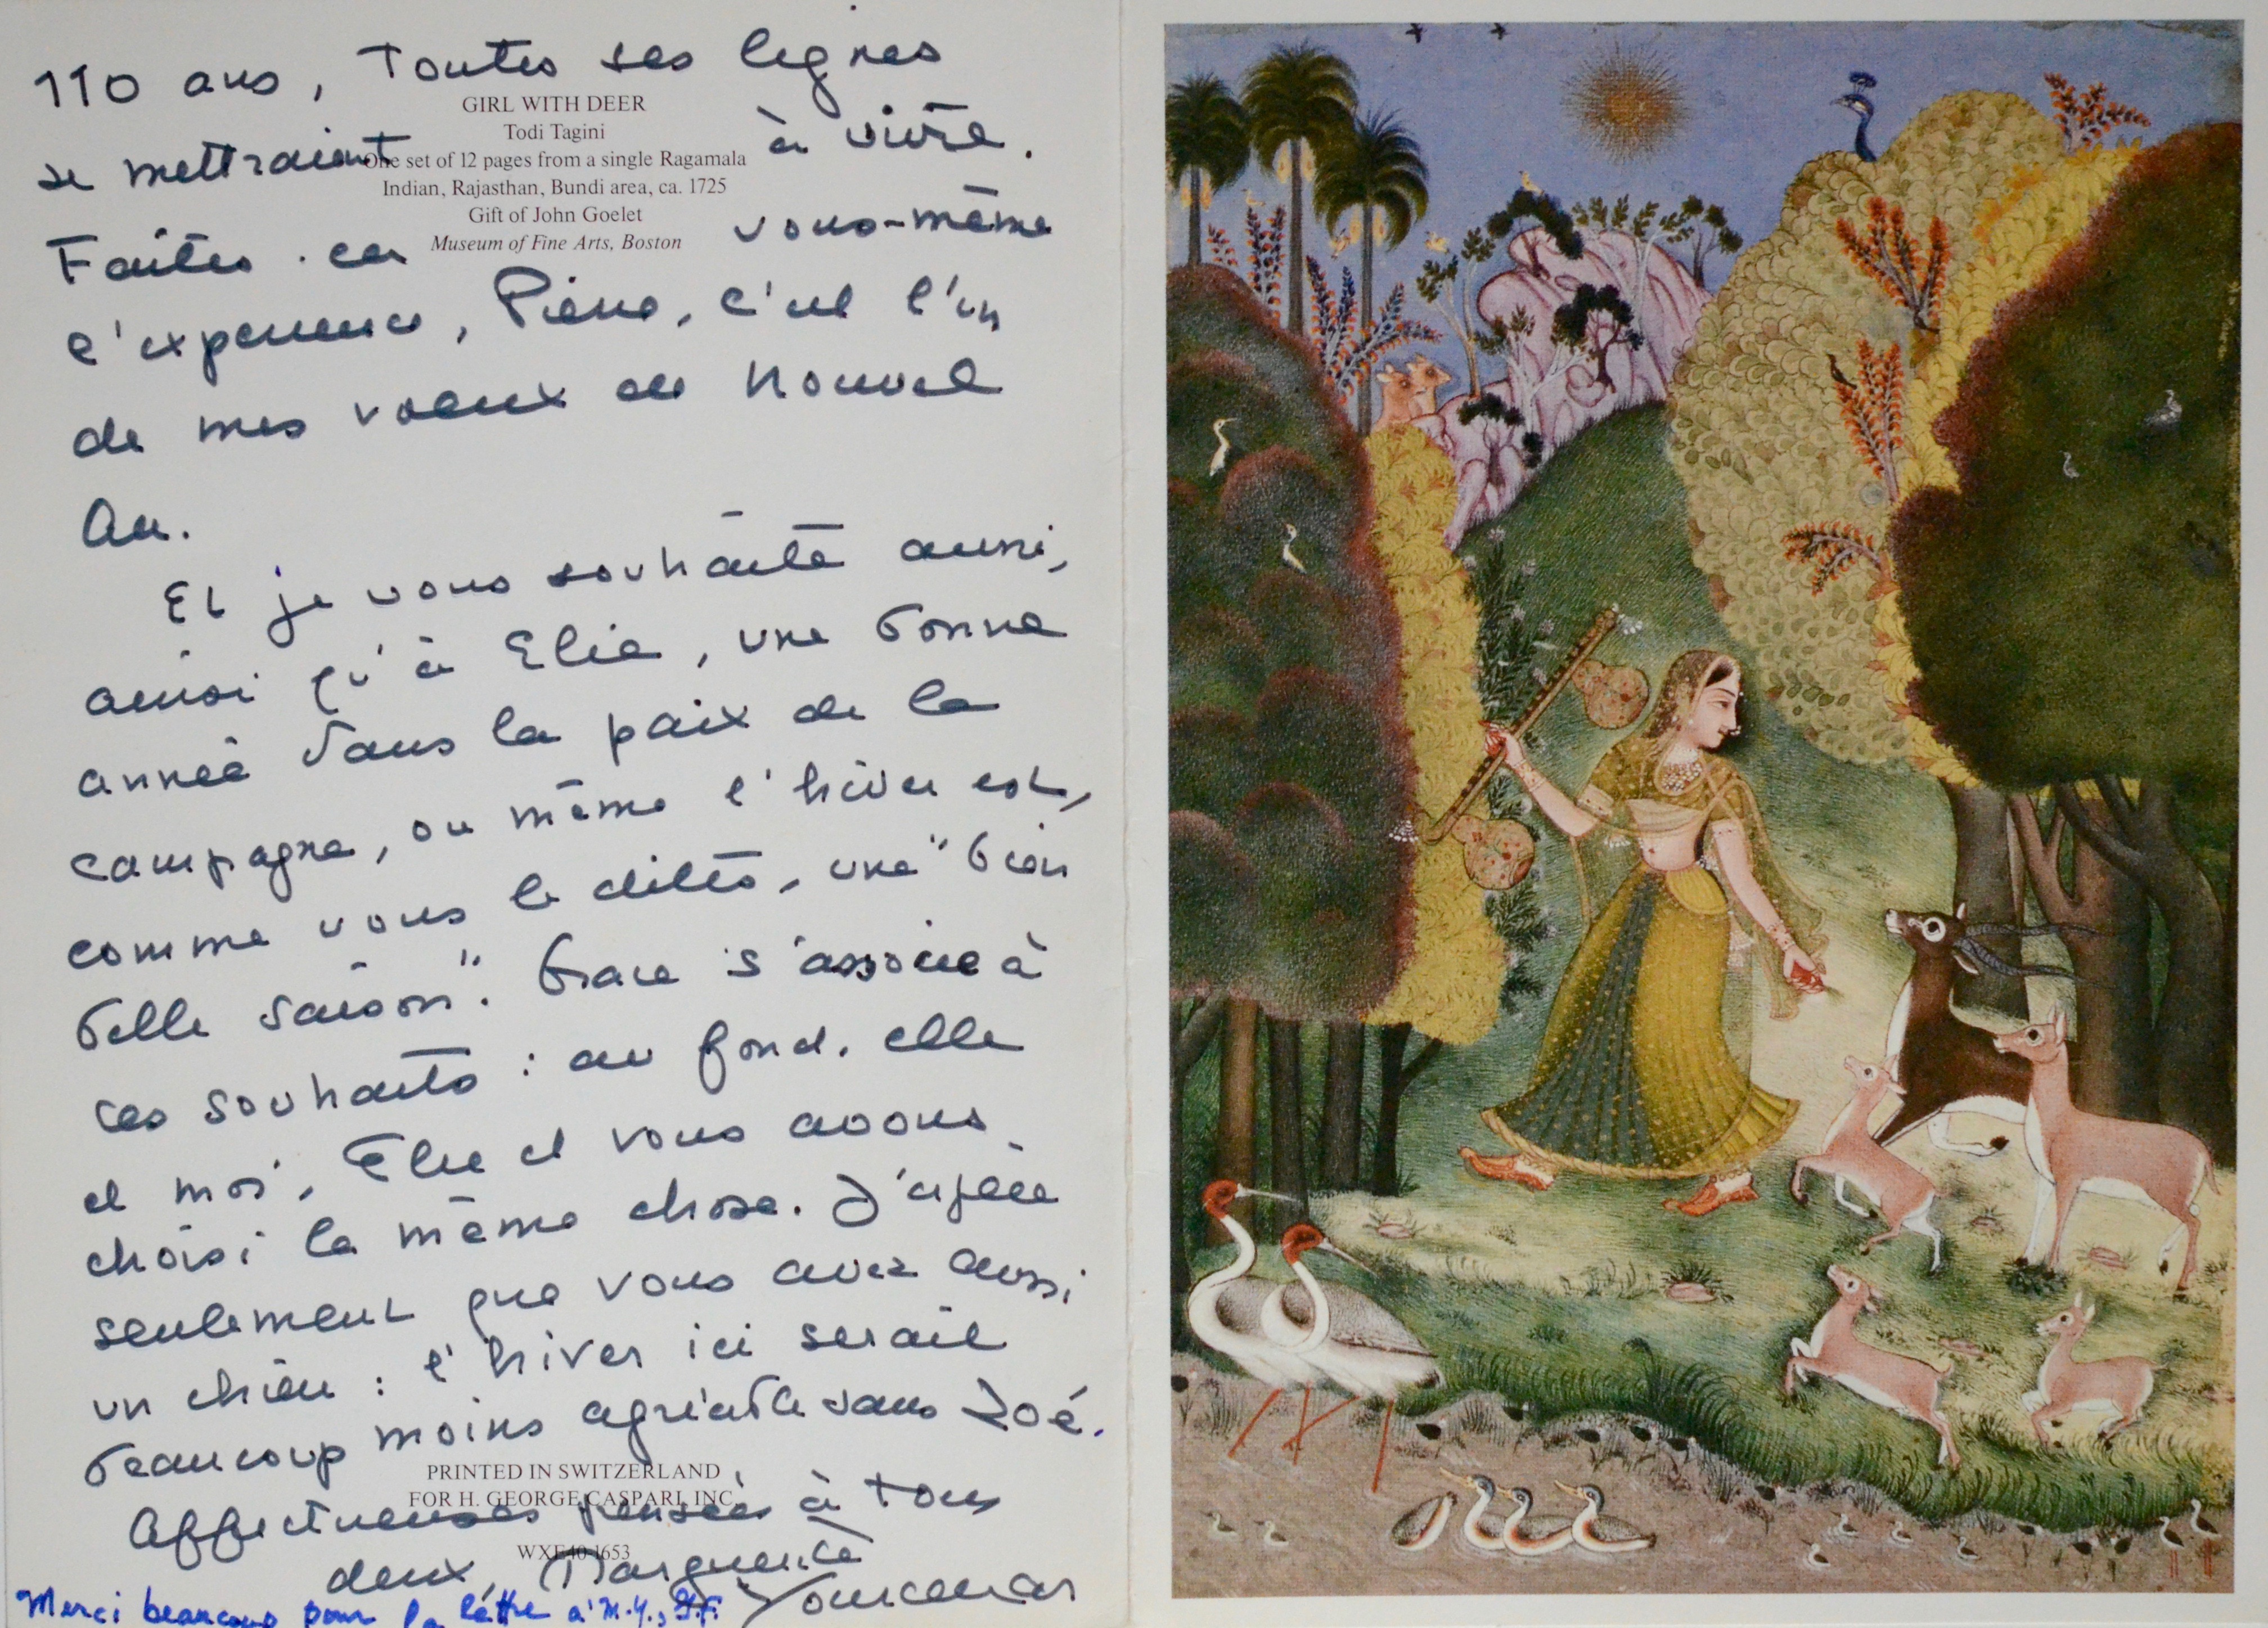 110 ans, Toutes ses lignes
GIRL WITH DEER
Todi Tagini
se mettraient à vivre.
One set of 12 pages from a single Ragamala
Indian, Rajasthan, Bundi area, ca. 1725
Gift of John Goelet
Faites. en vous-même
Museum of Fine Arts, Boston
l'expérience, Pierre, c'est l'un
de mes voeux de Nouvel
An.
Et je vous souhaite aussi,
ainsi qu'à Elie, une bonne
année dans la paix de la
campagne, où même l'hiver est,
comme vous le dites, une "bien
belle saison". Grace s'associe à
ces souhaits : au fond, elle
et moi, Elie et vous avons
choisi la même chose. J'espère
seulement que vous avez aussi
un chien : l'hiver ici serait
beaucoup moins agréable sans Zoé.
PRINTED IN SWITZERLAND
FOR H. GEORGE CASPARI, INC.
Affectueuses pensées à tous
WXE40-1653
deux, Marguerite
Yourcenar
Merci beaucoup pour la lettre à M.Y., G.F.